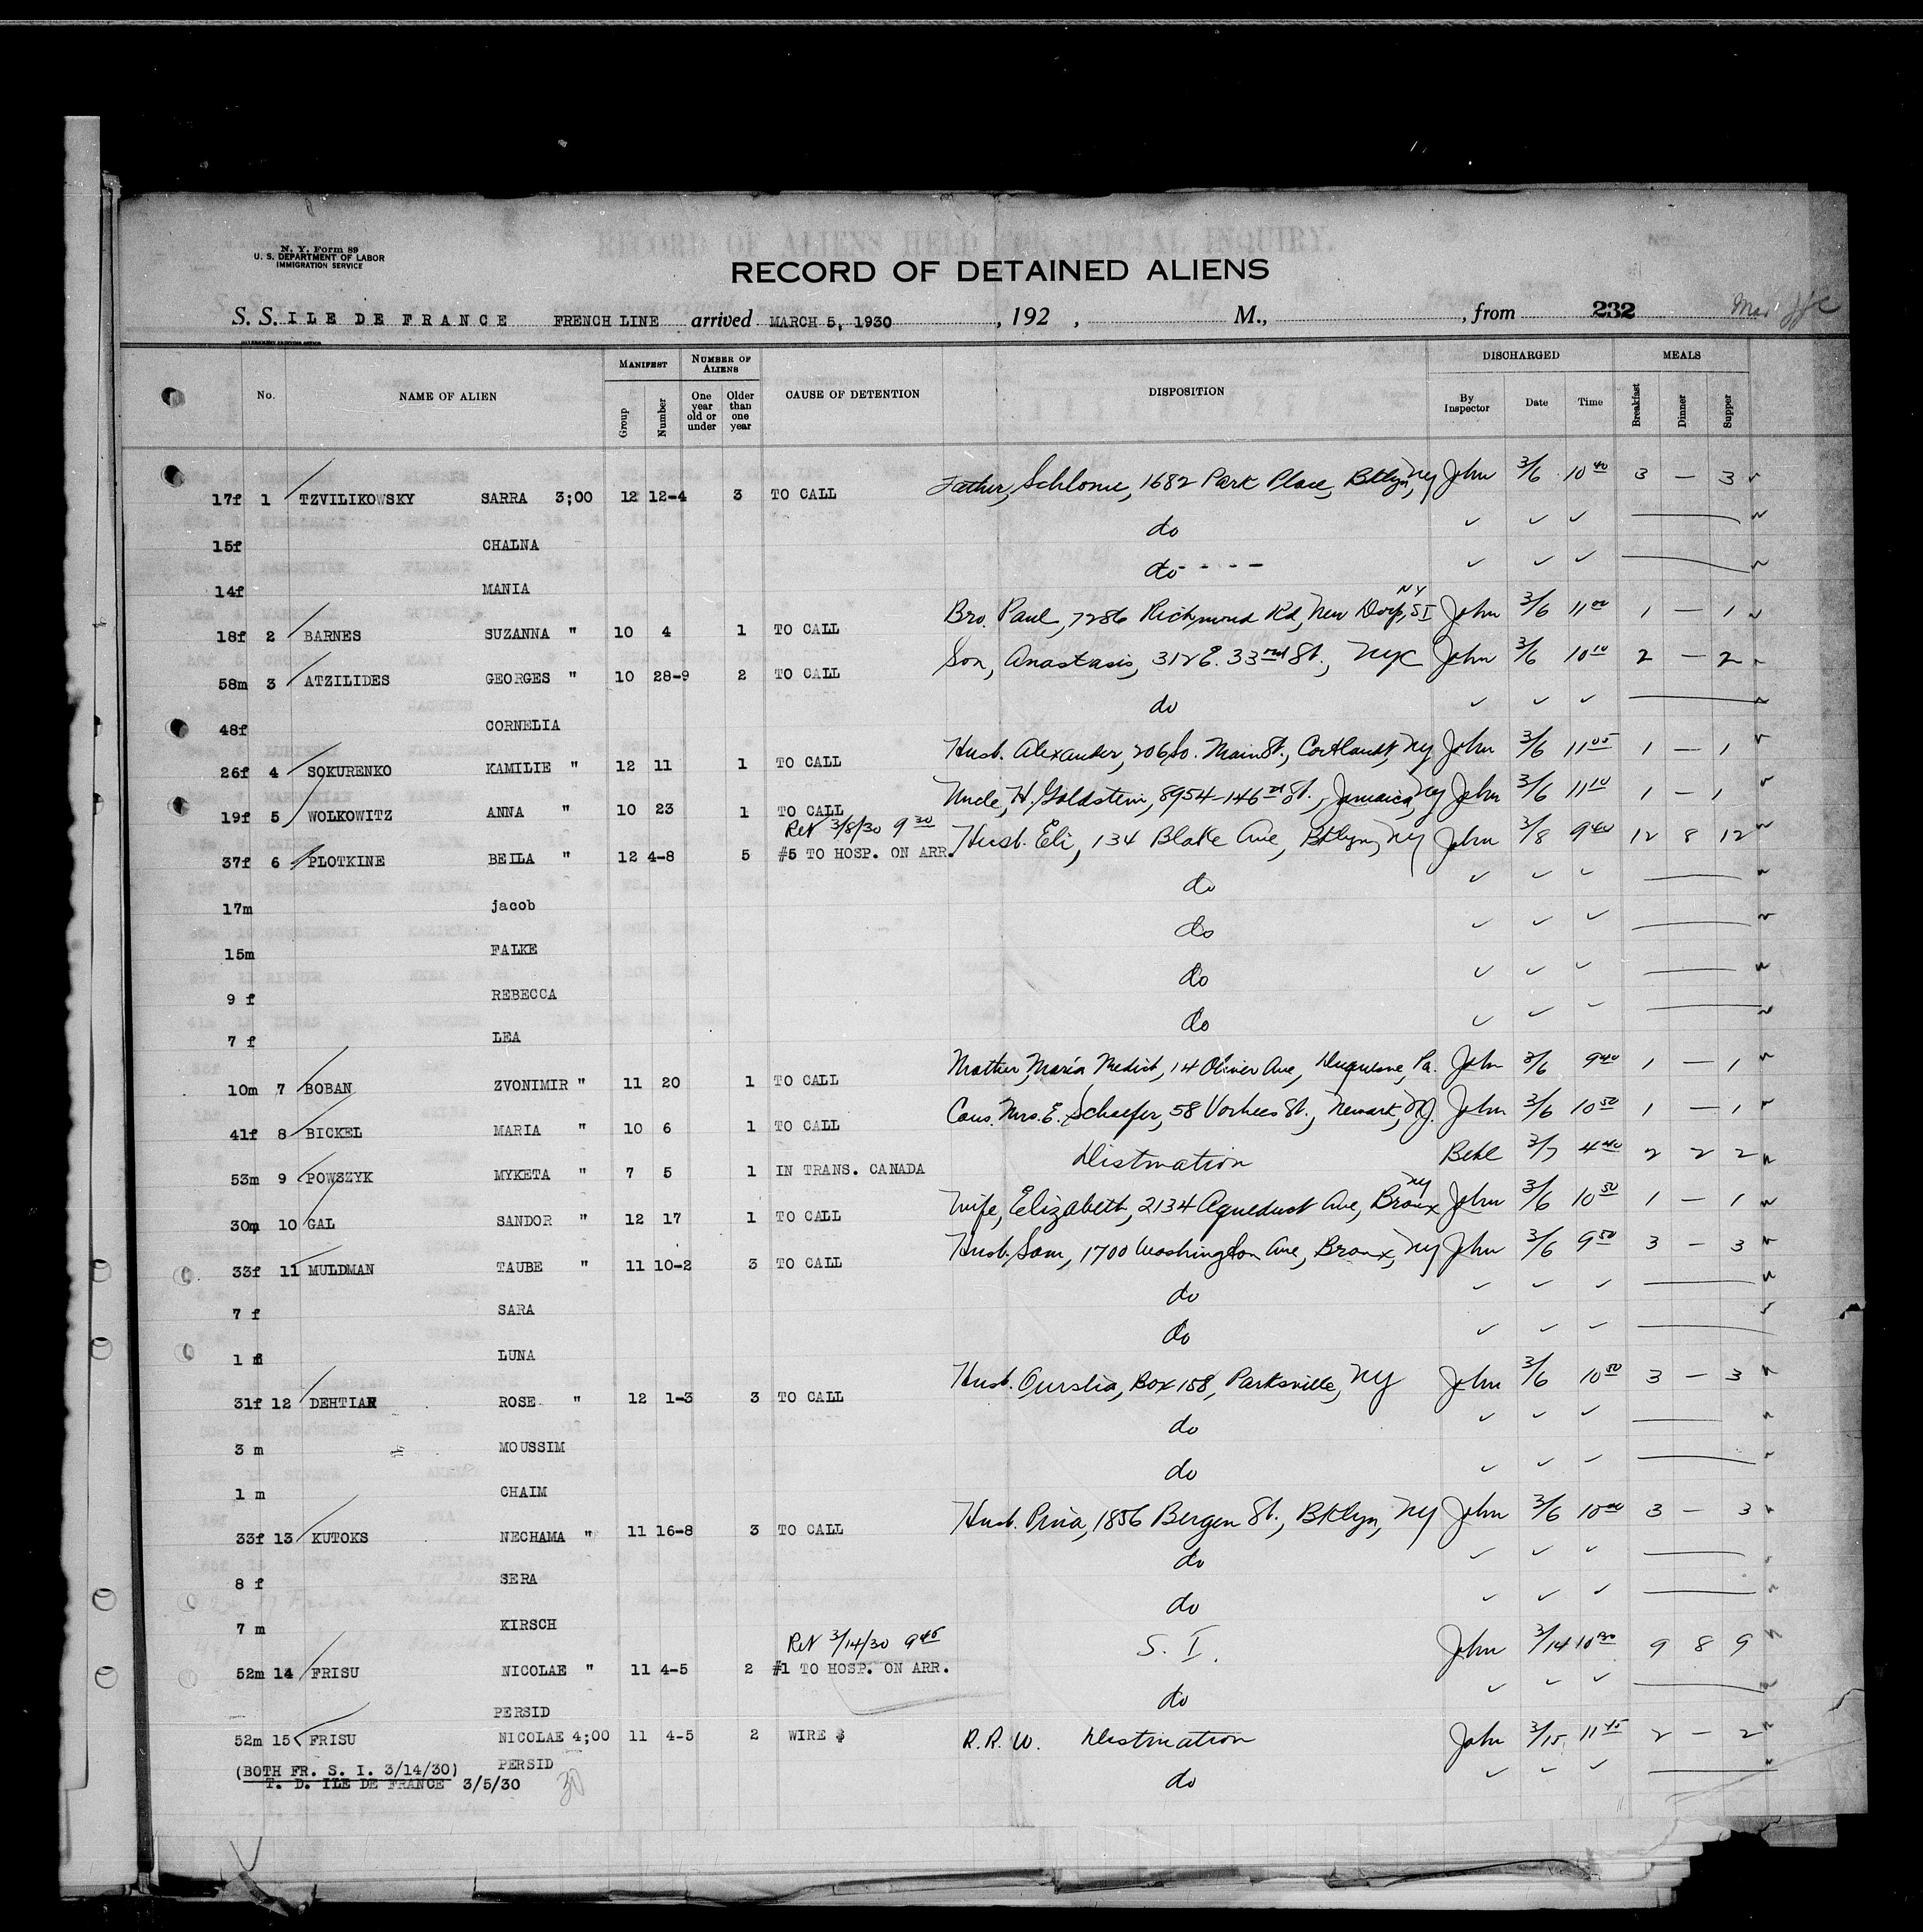 N. Y. Form 89
U. S. DEPARTMENT OF LABOR
IMMIGRATION SERVICE
RECORD OF ALIENS HELD FOR SPECIAL INQUIRY.
RECORD OF DETAINED ALIENS
S. S. ILE DE FRANCE FRENCH LINE arrived MARCH 5, 1930 , 192 , M., , from 232
GOVERNMENT PRINTING OFFICE
No. NAME OF ALIEN MANIFEST Group Number NUMBER OF ALIENS One year old or under Older than one year CAUSE OF DETENTION DISPOSITION DISCHARGED By Inspector Date Time MEALS Breakfast Dinner Supper
17f 1 TZVILIKOWSKY SARRA 3;00 12 12-4 3 TO CALL Father, Schlome, 1682 Park Place, Bklyn, NY John 3/6 10 40 3 — 3
15f CHALNA do ✓ ✓ ✓
14f MANIA do - - - - ✓ ✓ ✓
18f 2 BARNES SUZANNA " 10 4 1 TO CALL Bro. Paul, 7286 Richmond Rd, New Dorp, SI NY John 3/6 11 00 1 — 1
58m 3 ATZILIDES GEORGES " 10 28-9 2 TO CALL Son, Anastasis, 312 E. 33rd St., NYC John 3/6 10 10 2 — 2
48f CORNELIA do ✓ ✓ ✓
26f 4 SOKURENKO KAMILIE " 12 11 1 TO CALL Husb. Alexander, 206 So. Main St., Cortlandt, NY John 3/6 11 05 1 — 1
19f 5 WOLKOWITZ ANNA " 10 23 1 TO CALL Uncle, H. Goldstein, 8954-146 St., Jamaica, NY John 3/6 11 10 1 — 1
37f 6 PLOTKINE BEILA " 12 4-8 5 Ret 3/8/30 9 30 #5 TO HOSP. ON ARR. Husb. Eli, 134 Blake Ave, Bklyn, NY John 3/8 9 40 12 8 12
17m jacob do ✓ ✓ ✓
15m FALKE do ✓ ✓ ✓
9 f REBECCA do ✓ ✓ ✓
7 f LEA do ✓ ✓ ✓
10m 7 BOBAN ZVONIMIR " 11 20 1 TO CALL Mother, Maria Medich, 14 Oliver Ave, Duquesne, Pa. John 3/6 9 40 1 — 1
41f 8 BICKEL MARIA " 10 6 1 TO CALL Cous. Mrs. E. Schaefer, 58 Vorhees St., Newark, NJ. John 3/6 10 50 1 — 1
53m 9 POWSZYK MYKETA " 7 5 1 IN TRANS. CANADA Distination 3/7 4 40 2 2 2
30m 10 GAL SANDOR " 12 17 1 TO CALL Wife, Elizabeth, 2134 Aqueduct Ave, Bronx NY John 3/6 10 50 1 — 1
33f 11 MULDMAN TAUBE " 11 10-2 3 TO CALL Husb. Sam, 1700 Washington Ave, Bronx, NY John 3/6 9 50 3 — 3
7 f SARA do ✓ ✓ ✓
1 f LUNA do ✓ ✓ ✓
31f 12 DEHTIAR ROSE " 12 1-3 3 TO CALL Husb. Box 158, Parksville, NY John 3/6 10 50 3 — 3
3 m MOUSSIM do ✓ ✓ ✓
1 m CHAIM do ✓ ✓ ✓
33f 13 KUTOKS NECHAMA " 11 16-8 3 TO CALL Husb. 1856 Bergen St., Bklyn, NY John 3/6 10 00 3 — 3
8 f SERA do ✓ ✓ ✓
7 m KIRSCH do ✓ ✓ ✓
52m 14 FRISU NICOLAE " 11 4-5 2 Ret 3/14/30 9 45 #1 TO HOSP. ON ARR. S. I. John 3/14 10 30 9 8 9
PERSID do ✓ ✓ ✓
52m 15 FRISU NICOLAE 4;00 11 4-5 2 WIRE $ R. R. W. Distination John 3/15 11 45 2 — 2
PERSID do ✓ ✓ ✓
(BOTH FR. S. I. 3/14/30)
T. D. ILE DE FRANCE 3/5/30 30